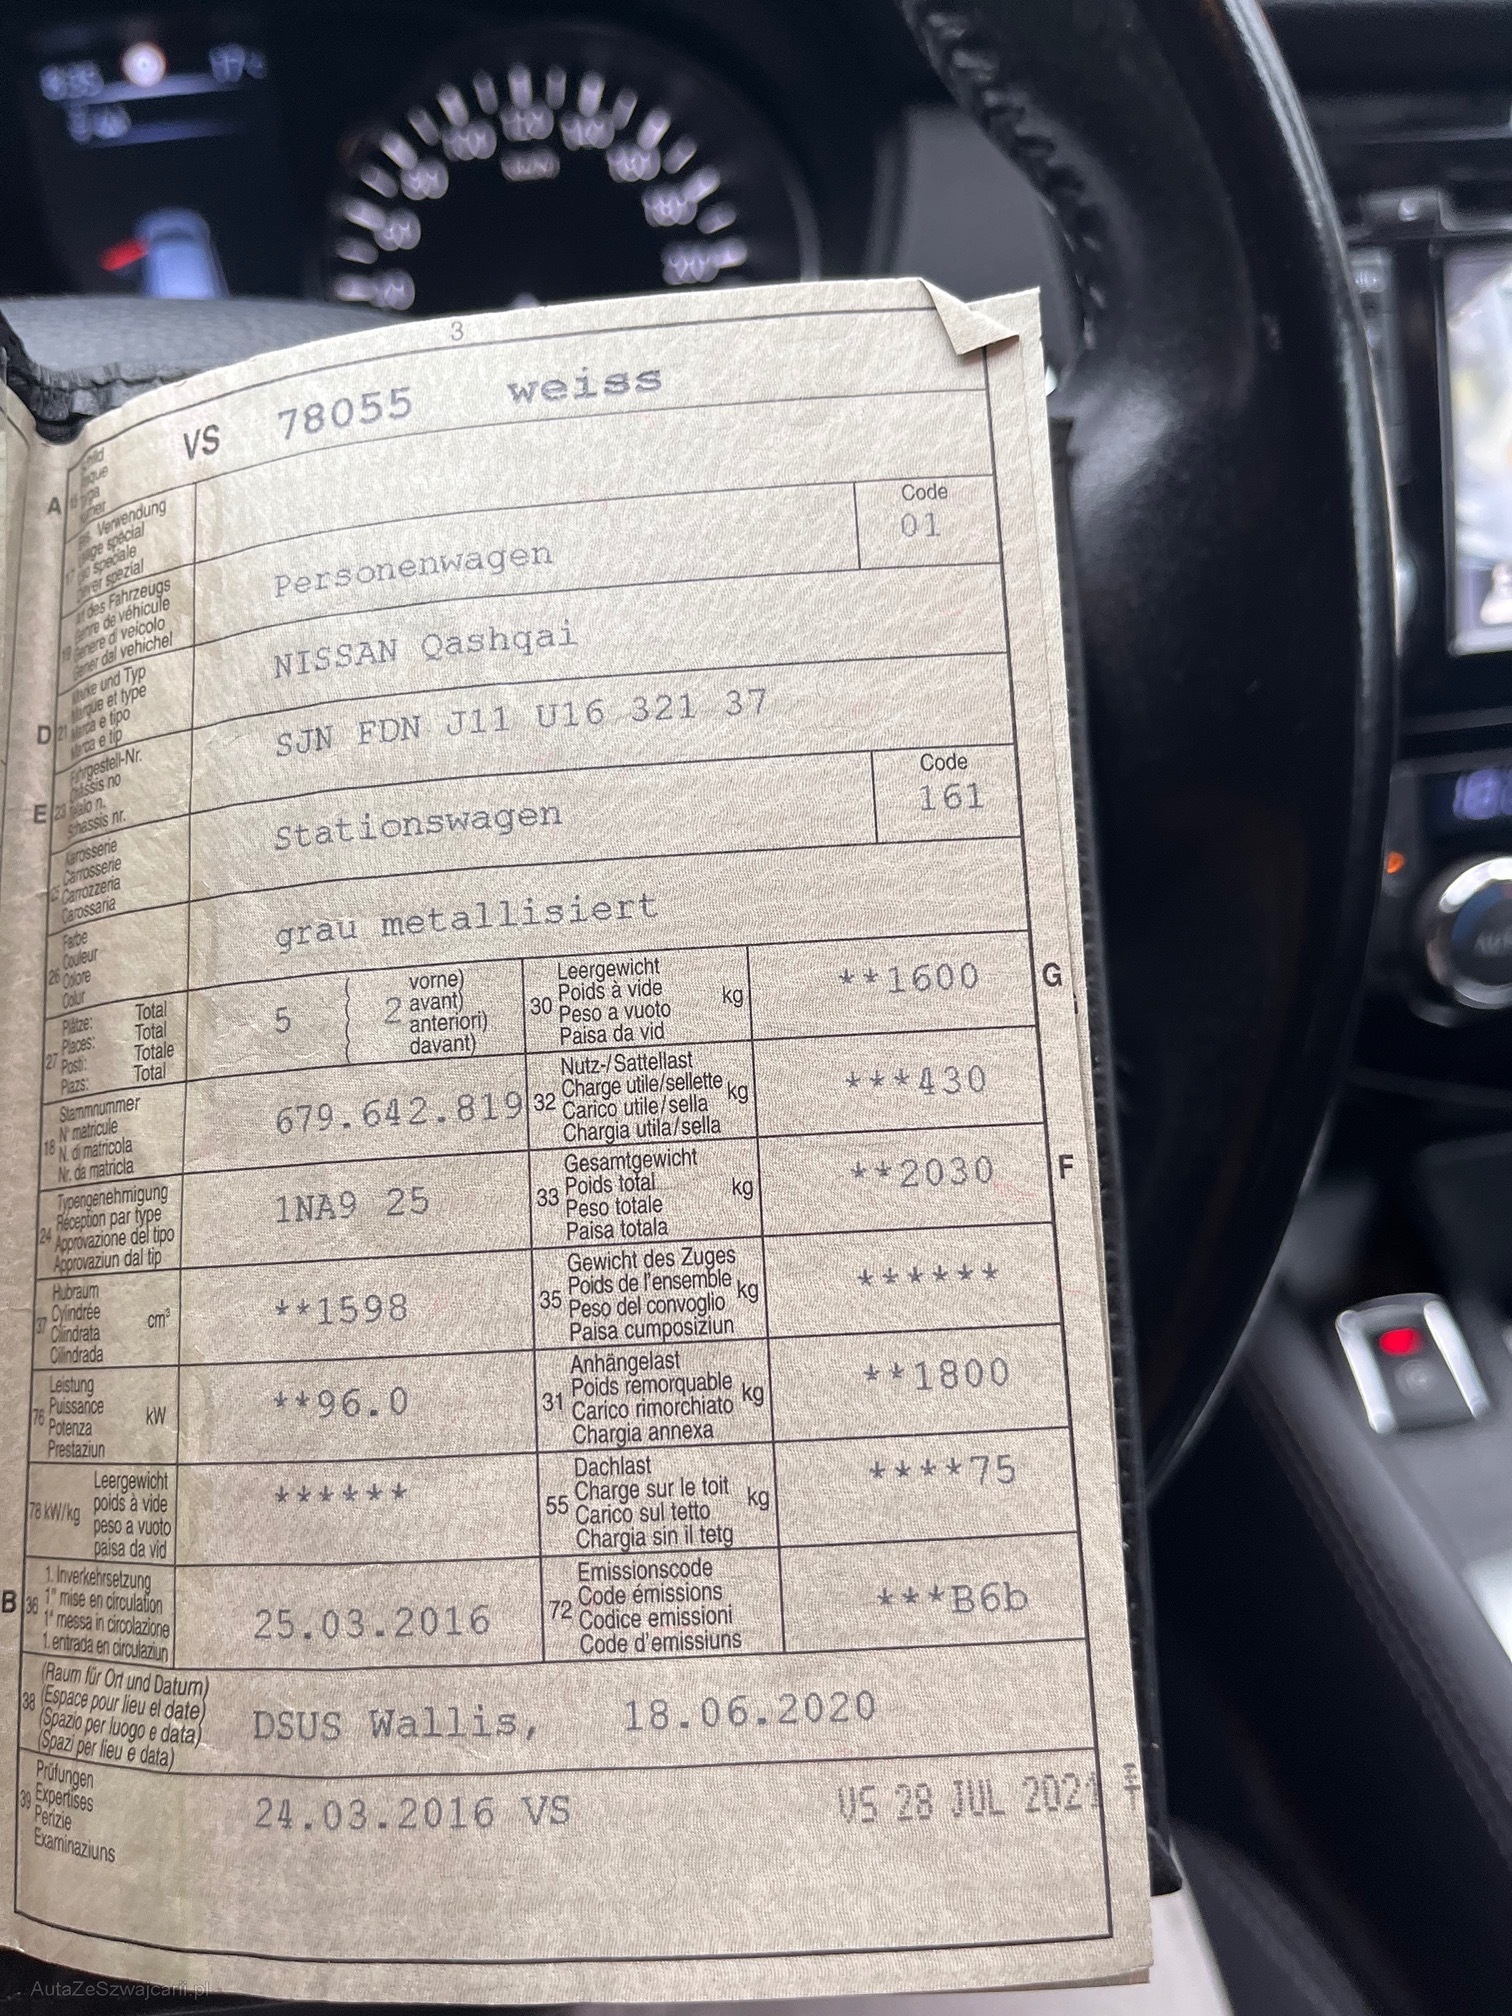 3
VS 78055 weiss
A
Verwendung
spécial
speciale
spezial
Code
01
Personenwagen
des Fahrzeugs
de véhicule
di veicolo
dal vehichel
NISSAN Qashqai
D 21
und Typ
et type
e tipo
e tip
SJN FDN J11 U16 321 37
E 23
Fahrgestell-Nr.
Châssis no
Telaio n.
Schassis nr.
Code
161
Stationswagen
Karosserie
Carrosserie
Carrozzeria
Carossaria
grau metallisiert
26
Farbe
Couleur
Colore
Colur
27
Plätze: Total
Places: Total
Posti: Totale
Plazs: Total
5
2
vorne)
avant)
anteriori)
davant)
30
Leergewicht
Poids à vide
Peso a vuoto
Paisa da vid
kg
**1600
G
18
Stammnummer
N° matricule
N. di matricola
Nr. da matricla
679.642.819
32
Nutz-/Sattellast
Charge utile/sellette
Carico utile/sella
Chargia utila/sella
kg
***430
24
Typengenehmigung
Réception par type
Approvazione del tipo
Approvaziun dal tip
1NA9 25
33
Gesamtgewicht
Poids total
Peso totale
Paisa totala
kg
**2030
F
37
Hubraum
Cylindrée
Cilindrata
Cilindrada
cm³
**1598
35
Gewicht des Zuges
Poids de l'ensemble
Peso del convoglio
Paisa cumposiziun
kg
******
76
Leistung
Puissance
Potenza
Prestaziun
kW
**96.0
31
Anhängelast
Poids remorquable
Carico rimorchiato
Chargia annexa
kg
**1800
78 kW/kg
Leergewicht
poids à vide
peso a vuoto
paisa da vid
******
55
Dachlast
Charge sur le toit
Carico sul tetto
Chargia sin il tetg
kg
****75
B 36
1. Inverkehrsetzung
1re mise en circulation
1a messa in circolazione
1. entrada en circulaziun
25.03.2016
72
Emissionscode
Code émissions
Codice emissioni
Code d'emissiuns
***B6b
38
(Raum für Ort und Datum)
(Espace pour lieu et date)
(Spazio per luogo e data)
(Spazi per lieu e data)
DSUS Wallis, 18.06.2020
39
Prüfungen
Expertises
Perizie
Examinaziuns
24.03.2016 VS
VS 28 JUL 2021
AutaZeSzwajcarii.pl